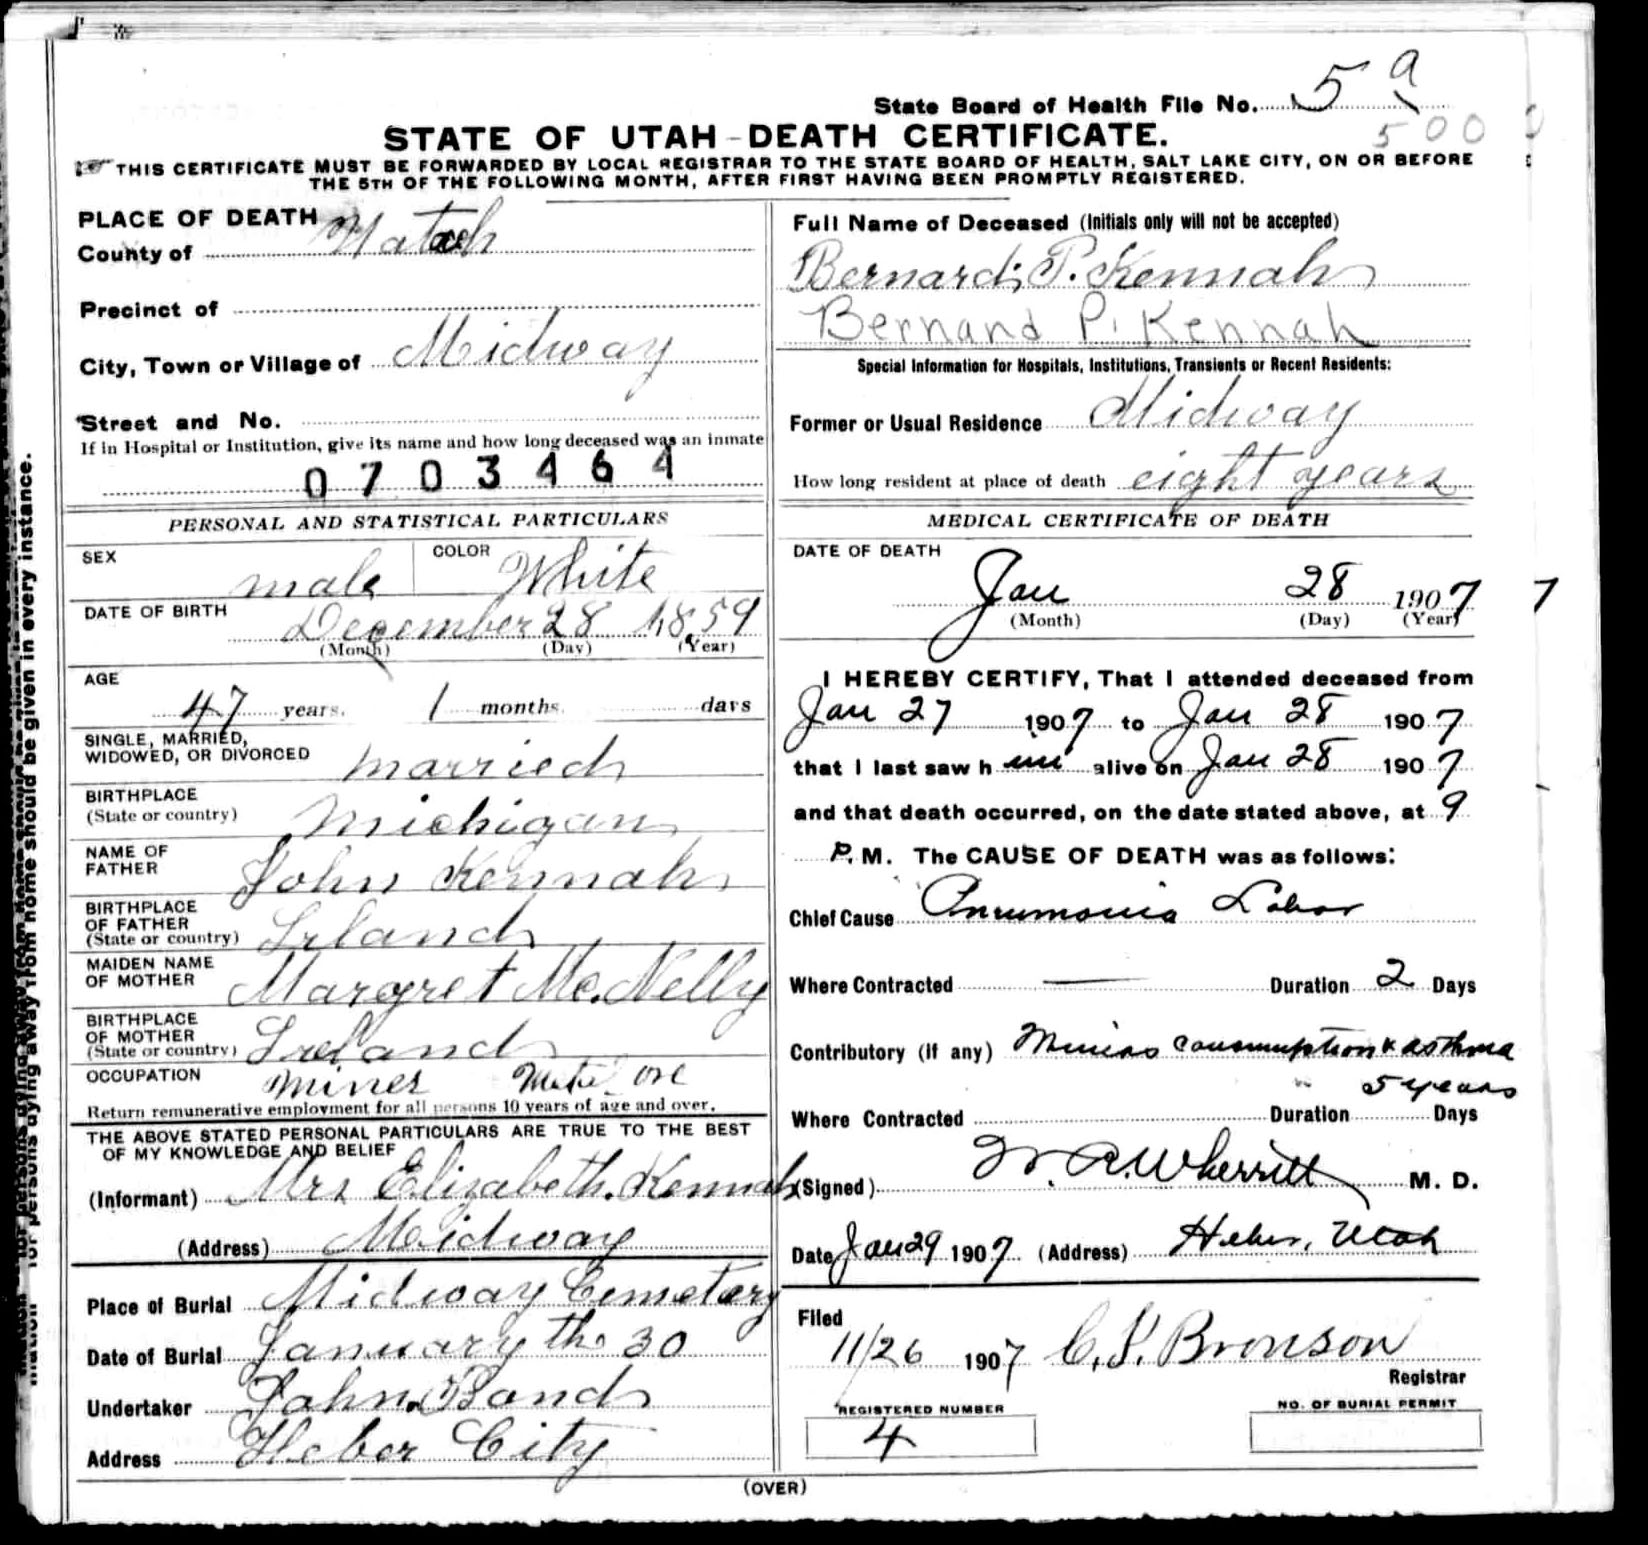 State Board of Health File No. 5 a
500
STATE OF UTAH - DEATH CERTIFICATE.
THIS CERTIFICATE MUST BE FORWARDED BY LOCAL REGISTRAR TO THE STATE BOARD OF HEALTH, SALT LAKE CITY, ON OR BEFORE
THE 5TH OF THE FOLLOWING MONTH, AFTER FIRST HAVING BEEN PROMPTLY REGISTERED.
PLACE OF DEATH
County of
Precinct of
City, Town or Village of Midway
Street and No.
If in Hospital or Institution, give its name and how long deceased was an inmate
0703464
Full Name of Deceased (Initials only will not be accepted)
Bernard P. Kennah
Bernand P. Kennah
Special Information for Hospitals, Institutions, Transients or Recent Residents:
Former or Usual Residence Midway
How long resident at place of death eight years
PERSONAL AND STATISTICAL PARTICULARS
SEX male COLOR White
DATE OF BIRTH December 28 1859
(Month) (Day) (Year)
AGE 47 years. 1 months. days
SINGLE, MARRIED,
WIDOWED, OR DIVORCED married
BIRTHPLACE
(State or country) Michigan
NAME OF
FATHER John Kennah
BIRTHPLACE
OF FATHER
(State or country) Irland
MAIDEN NAME
OF MOTHER Margret Mc.Nelly
BIRTHPLACE
OF MOTHER
(State or country) Ireland
OCCUPATION miner ore
Return remunerative employment for all persons 10 years of age and over.
THE ABOVE STATED PERSONAL PARTICULARS ARE TRUE TO THE BEST
OF MY KNOWLEDGE AND BELIEF
(Informant) Mrs Elizabeth. Kennah
(Address) Midway
Place of Burial Midway Cemetary
Date of Burial January the 30
Undertaker John Bond
Address Heber City
MEDICAL CERTIFICATE OF DEATH
DATE OF DEATH
Jan 28 1907 7
(Month) (Day) (Year)
I HEREBY CERTIFY, That I attended deceased from
Jan 27 1907 to Jan 28 1907
that I last saw h im alive on Jan 28 1907
and that death occurred, on the date stated above, at 9
P. M. The CAUSE OF DEATH was as follows:
Chief Cause Pneumonia Lobar
Where Contracted — Duration 2 Days
Contributory (if any) Miners Consumption & asthma
" 5 years
Where Contracted Duration Days
(Signed) W. R. Wherritt M. D.
Date Jan 29 1907 (Address) Heber, Utah
Filed
11/26 1907 C. S. Bronson
Registrar
REGISTERED NUMBER
4
NO. OF BURIAL PERMIT
(OVER)
for persons dying away from home should be given in every instance.